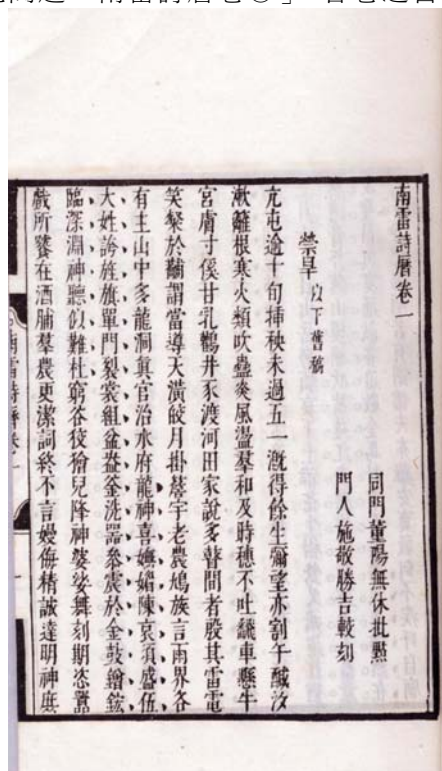 南雷詩曆卷一
同門董陽無休批點
門人施敬勝吉較刻
禜旱 以下舊稿
亢屯逾十旬插秧未過五一溉得餘生彌望亦割午
漱籬根寒火類吹蠱炎風溫羣和及時穗不吐車懸牛
宮膚寸徯甘乳鸛井豕渡河田家說多瞽間者殷其雷電
笑繫於謂當導天潢皎月掛簷宇老農鳩族言雨界各
有主山中多龍洞眞官治水府龍神喜嫵媚陳哀須盛伍
大姓誇旌旗單門裂裳組盆盎釜洗器參震於金鼓
臨深淵神聽似難杜窮谷狡獪兒降神婆娑舞刻期恣嚚
戲所饕在酒脯羣農更潔詞終不言嫚侮精誠達明神庶